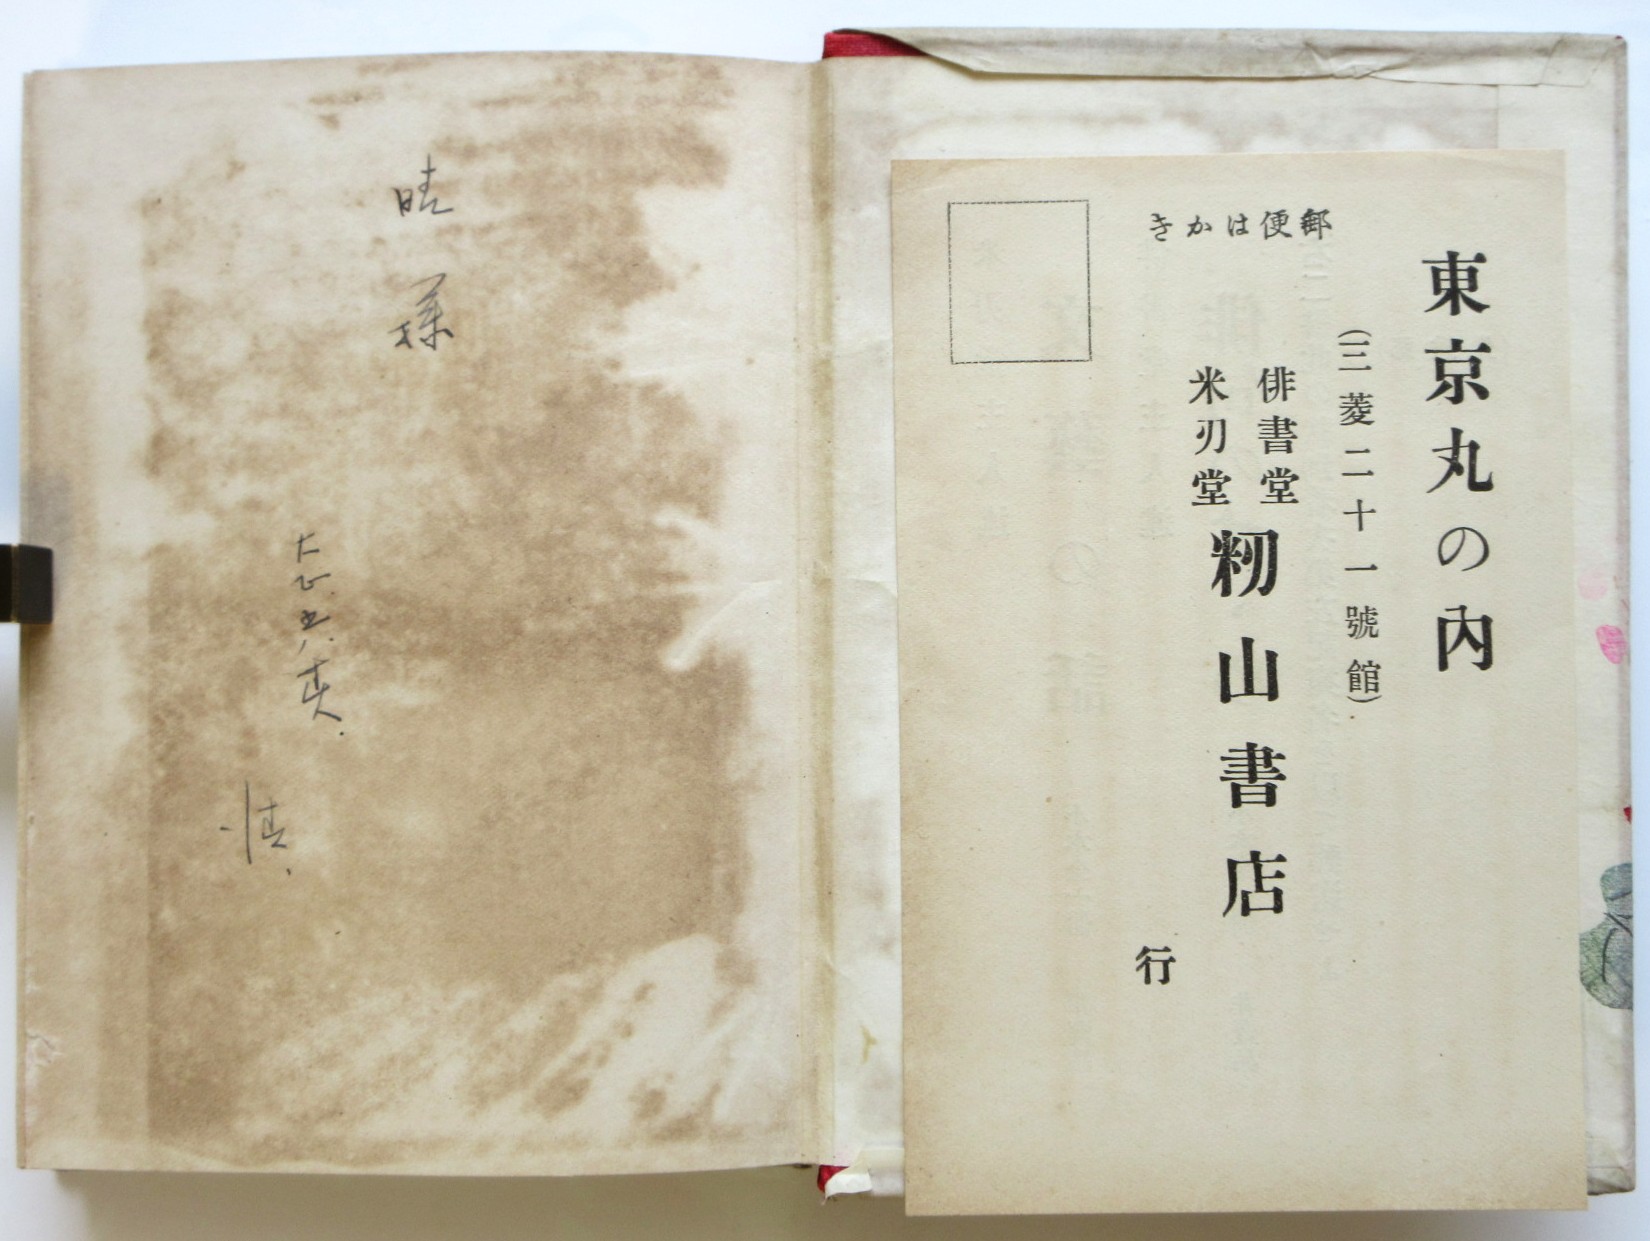 東京丸の内
(三菱二十一號館)
郵便はかき
俳書堂
米刃堂
籾山書店
行
晴様
大正五